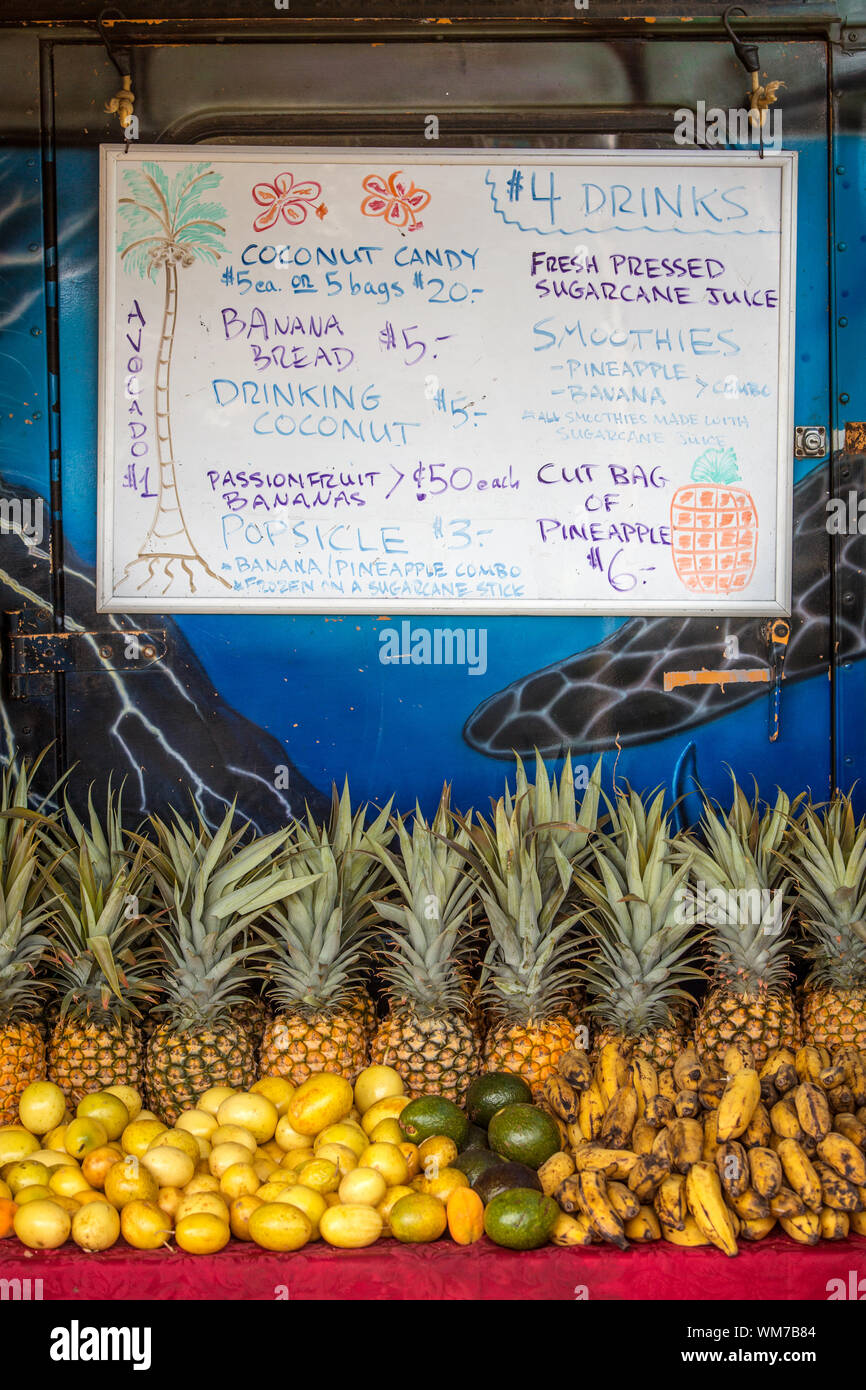 COCONUT CANDY
$5 ea. OR 5 bags $20.-
BANANA
BREAD $5.-
DRINKING
COCONUT $5.-
PASSIONFRUIT
BANANAS > ¢50 each
POPSICLE $3.-
*BANANA/PINEAPPLE COMBO
*FROZEN ON A SUGARCANE STICK
AVOCADO
$1
$4 DRINKS
FRESH PRESSED
SUGARCANE JUICE
SMOOTHIES
-PINEAPPLE
-BANANA > COMBO
*ALL SMOOTHIES MADE WITH
SUGARCANE JUICE
CUT BAG
OF
PINEAPPLE
$6.-
alamy
alamy
Image ID: WM7B84
www.alamy.com